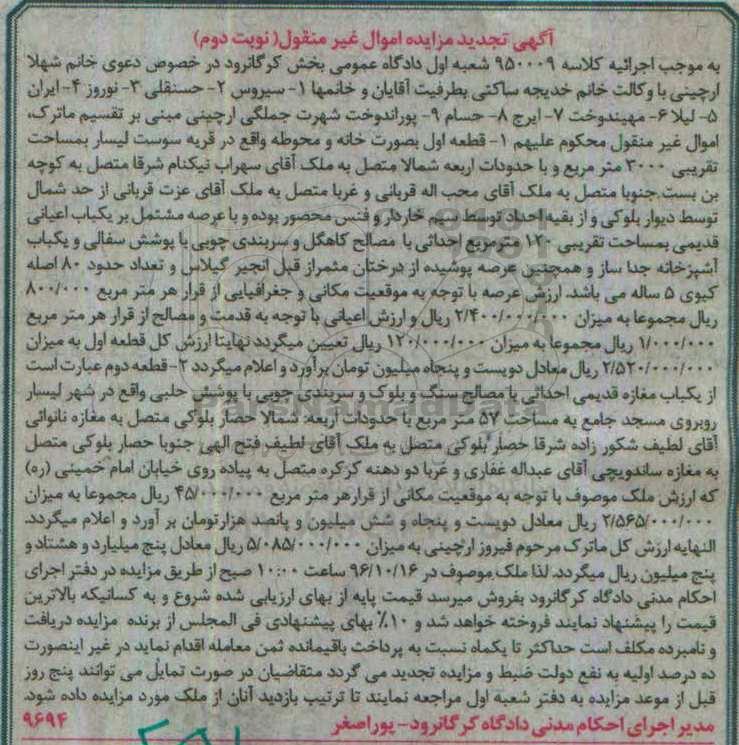 آگهی تجدید مزایده اموال غیر منقول( نوبت دوم)
به موجب اجرائیه کلاسه ۹۵۰۰۰۹ شعبه اول دادگاه عمومی بخش کرگانرود در خصوص دعوی خانم شهلا
ارچینی با وکالت خانم خدیجه ساکتی بطرفیت آقایان و خانمها ۱- سیروس ۲- حسنقلی ۳- نوروز ۴- ایران
۵- لیلا ۶- مهیندوخت ۷- ایرج ۸- حسام ۹- پوراندوخت شهرت جملگی ارچینی مبنی بر تقسیم ماترک،
اموال غیر منقول محکوم علیهم ۱- قطعه اول بصورت خانه و محوطه واقع در قریه سوست لیسار بمساحت
تقریبی ۳۰۰۰ متر مربع و با حدودات اربعه شمالا متصل به ملک آقای سهراب نیکنام شرقا متصل به کوچه
بن بست جنوبا متصل به ملک آقای محب اله قربانی و غربا متصل به ملک آقای عزت قربانی از حد شمال
توسط دیوار بلوکی و از بقیه احداد توسط سیم خاردار و فنس محصور بوده و با عرصه مشتمل بر یکباب اعیانی
قدیمی بمساحت تقریبی ۱۲۰ مترمربع احداثی با مصالح کاهگل و سربندی چوبی با پوشش سفالی و یکباب
آشپزخانه جدا ساز و همچنین عرصه پوشیده از درختان مثمر از قبل انجیر گیلاس و تعداد حدود ۸۰ اصله
کیوی ۵ ساله می باشد. ارزش عرصه با توجه به موقعیت مکانی و جغرافیایی از قرار هر متر مربع ۸۰۰/۰۰۰
ریال مجموعا به میزان ۲/۴۰۰/۰۰۰/۰۰۰ ریال و ارزش اعیانی با توجه به قدمت و مصالح از قرار هر متر مربع
۱/۰۰۰/۰۰۰ ریال مجموعا به میزان ۱۲۰/۰۰۰/۰۰۰ ریال تعیین میگردد نهایتا ارزش کل قطعه اول به میزان
۲/۵۲۰/۰۰۰/۰۰۰ ریال معادل دویست و پنجاه میلیون تومان برآورد و اعلام میگردد ۲- قطعه دوم عبارت است
از یکباب مغازه قدیمی احداثی با مصالح سنگ و بلوک و سربندی چوبی با پوشش حلبی واقع در شهر لیسار
روبروی مسجد جامع به مساحت ۵۷ متر مربع با حدودات اربعه: شمالا حصار بلوکی متصل به مغازه نانوائی
آقای لطیف شکور زاده شرقا حصار بلوکی متصل به ملک آقای لطیف فتح الهی جنوبا حصار بلوکی متصل
به مغازه ساندویچی آقای عبداله غفاری و غربا دو دهنه کرکره متصل به پیاده روی خیابان امام خمینی (ره)
که ارزش ملک موصوف با توجه به موقعیت مکانی از قرار هر متر مربع ۴۵/۰۰۰/۰۰۰ ریال مجموعا به میزان
۲/۵۶۵/۰۰۰/۰۰۰ ریال معادل دویست و پنجاه و شش میلیون و پانصد هزارتومان بر آورد و اعلام میگردد.
النهایه ارزش کل ماترک مرحوم فیروز ارچینی به میزان ۵/۰۸۵/۰۰۰/۰۰۰ ریال معادل پنج میلیارد و هشتاد و
پنج میلیون ریال میگردد. لذا ملک موصوف در ۹۶/۱۰/۱۶ ساعت ۱۰:۰۰ صبح از طریق مزایده در دفتر اجرای
احکام مدنی دادگاه کرگانرود بفروش میرسد قیمت پایه از بهای ارزیابی شده شروع و به کسانیکه بالاترین
قیمت را پیشنهاد نمایند فروخته خواهد شد و ۱۰٪ بهای پیشنهادی فی المجلس از برنده مزایده دریافت
و نامبرده مکلف است حداکثر تا یکماه نسبت به پرداخت باقیمانده ثمن معامله اقدام نماید در غیر اینصورت
ده درصد اولیه به نفع دولت ضبط و مزایده تجدید می گردد متقاضیان در صورت تمایل می توانند پنج روز
قبل از موعد مزایده به دفتر شعبه اول مراجعه نمایند تا ترتیب بازدید آنان از ملک مورد مزایده داده شود.
مدیر اجرای احکام مدنی دادگاه کرگانرود- پوراصغر ۹۶۹۴